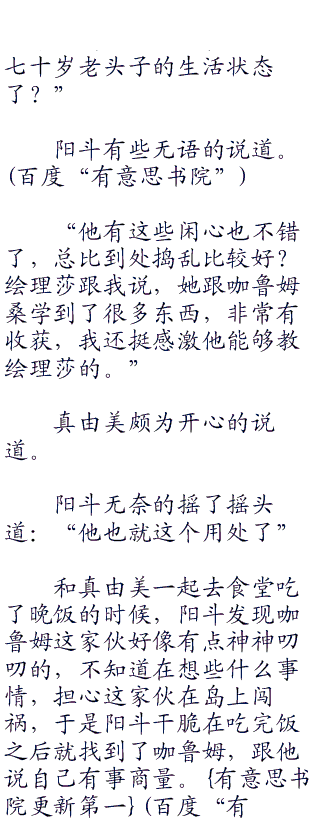 七十岁老头子的生活状态
了？”
阳斗有些无语的说道。
(百度“有意思书院”)
“他有这些闲心也不错
了，总比到处捣乱比较好？
绘理莎跟我说，她跟咖鲁姆
桑学到了很多东西，非常有
收获，我还挺感激他能够教
绘理莎的。”
真由美颇为开心的说
道。
阳斗无奈的摇了摇头
道：“他也就这个用处了”
和真由美一起去食堂吃
了晚饭的时候，阳斗发现咖
鲁姆这家伙好像有点神神叨
叨的，不知道在想些什么事
情，担心这家伙在岛上闯
祸，于是阳斗干脆在吃完饭
之后就找到了咖鲁姆，跟他
说自己有事商量。{有意思书
院更新第一}(百度“有